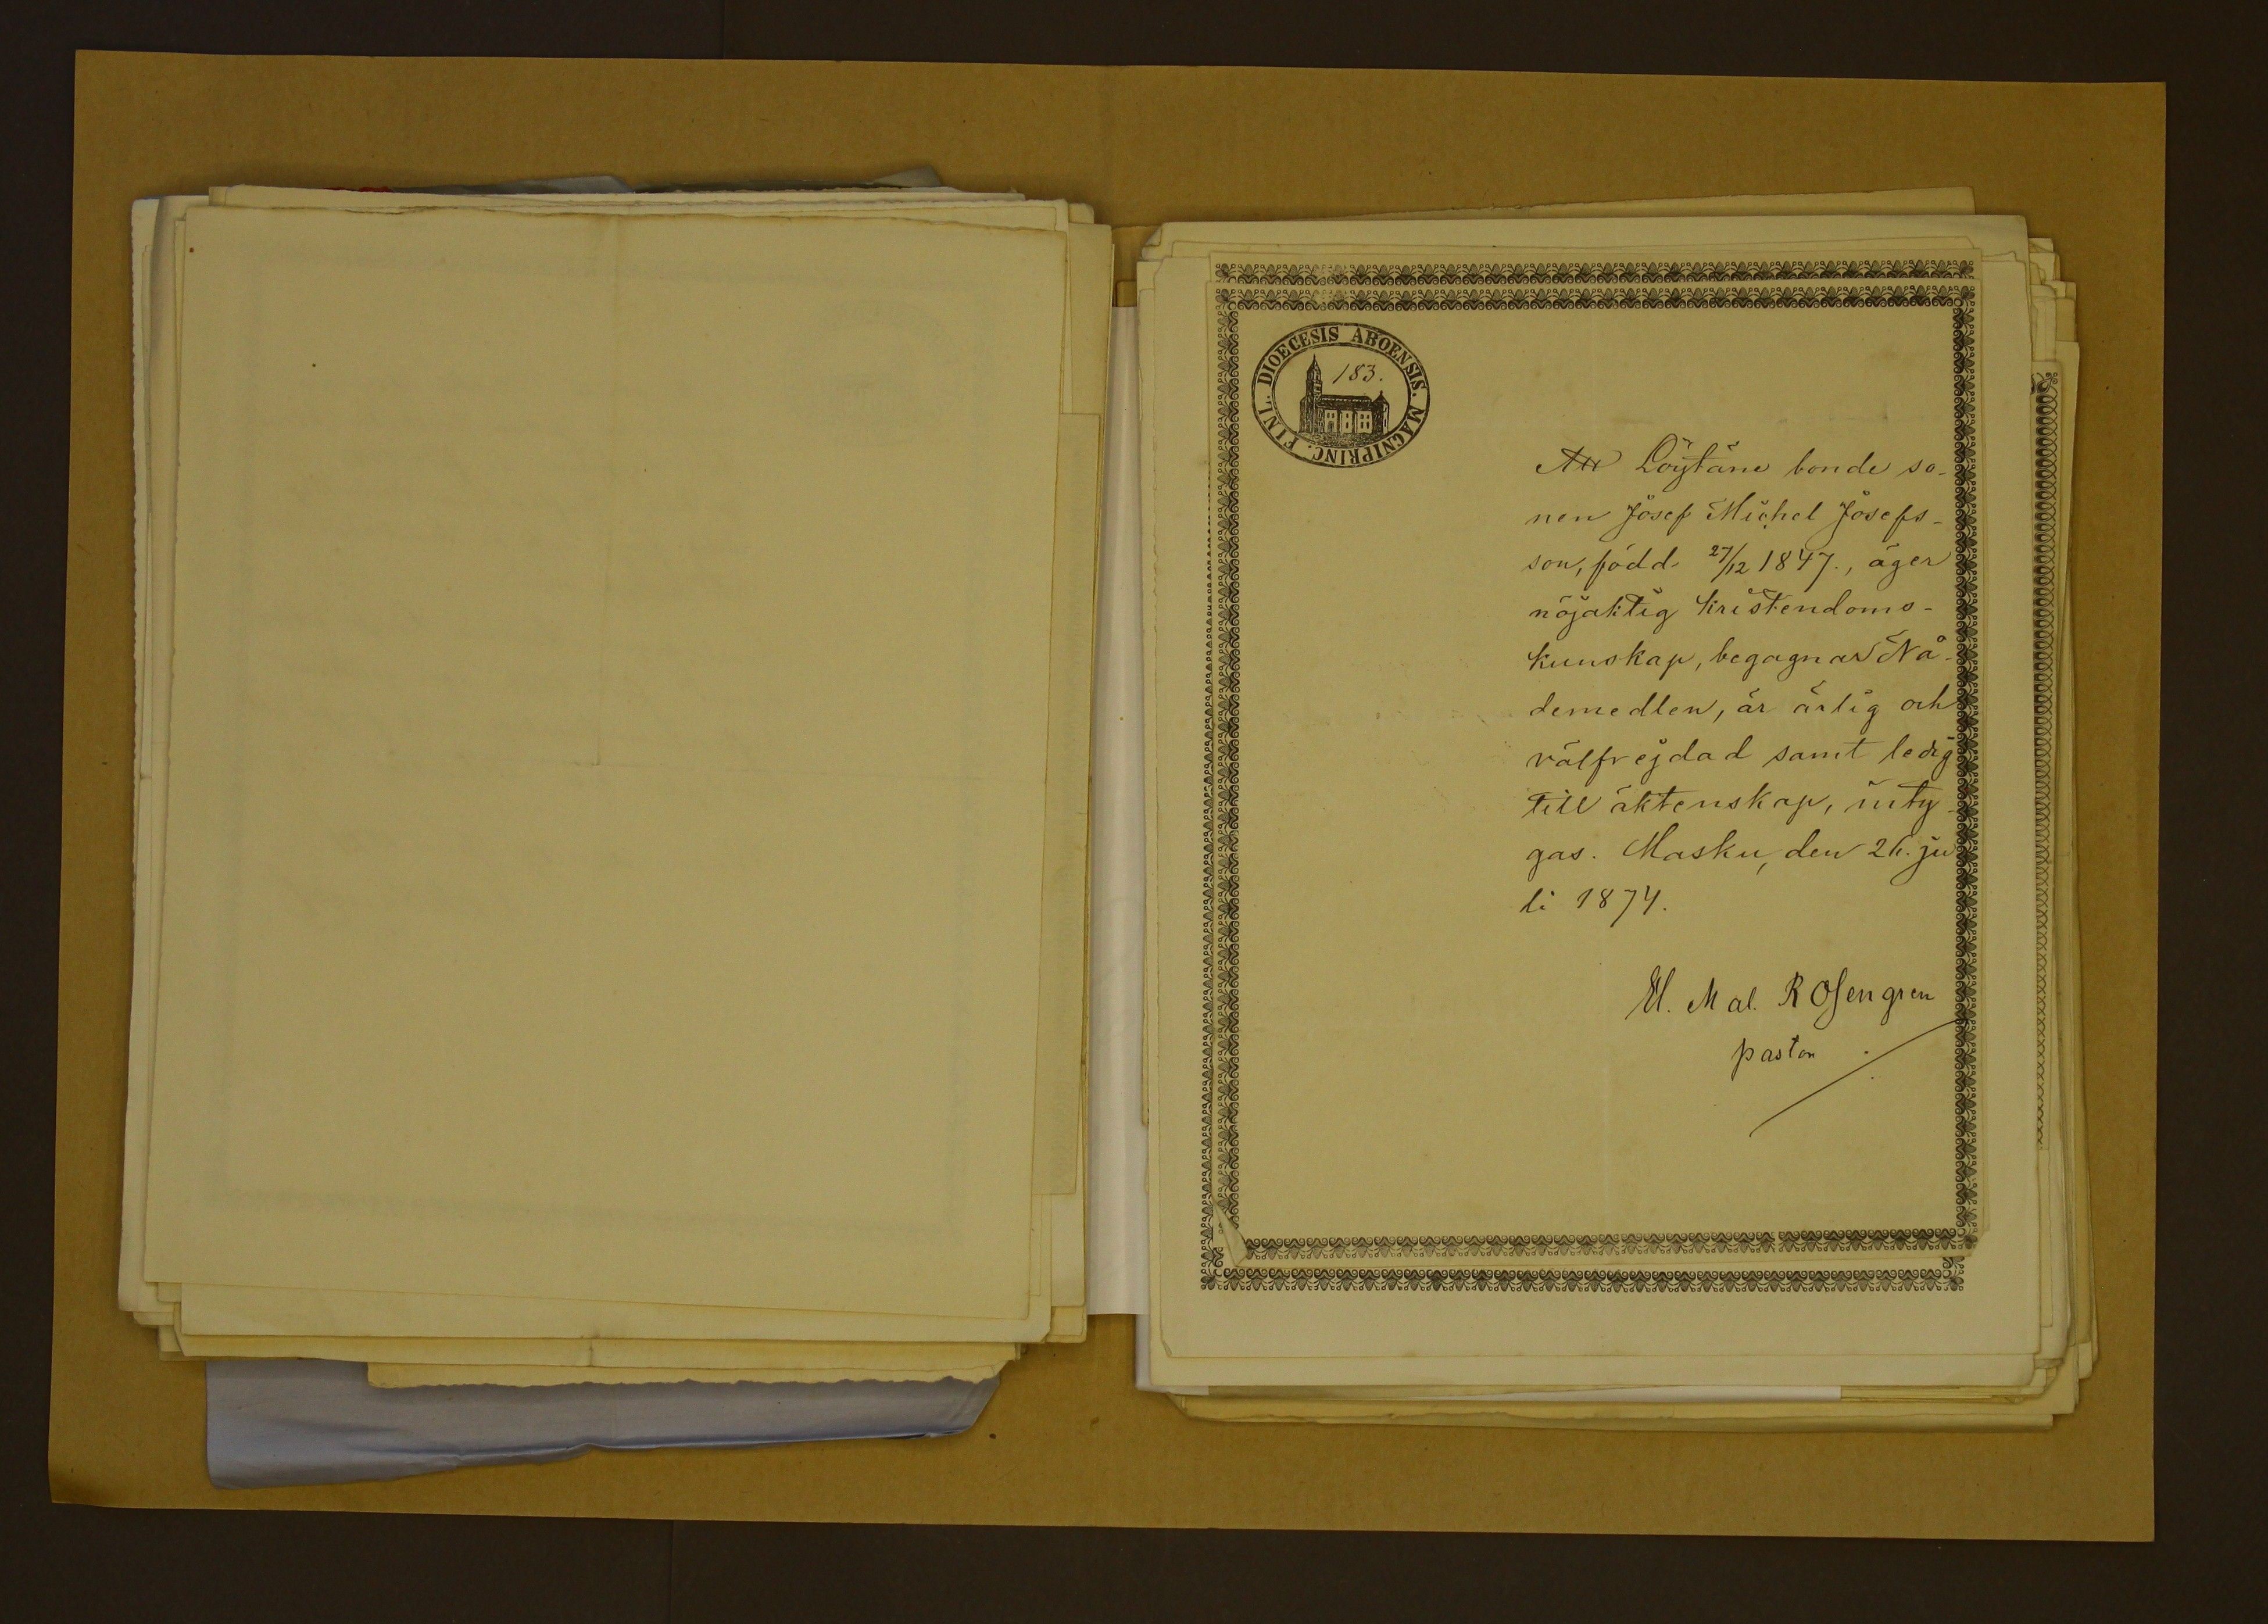 DIOECESIS ABOENSIS. MAGNIPRINC. FINL.
183.
Att Löytäne bonde so-
nen Josef Michel Josefs-
son, född 27/12 1847., äger
nöjaktig kristendoms-
kunskap, begagnar Nå-
demedlen, är ärlig och
välfrejdad samt ledig
till äktenskap, inty-
gas. Masku, den 26. ju
li 1874.
El. Mal. ROsengren
pastor.